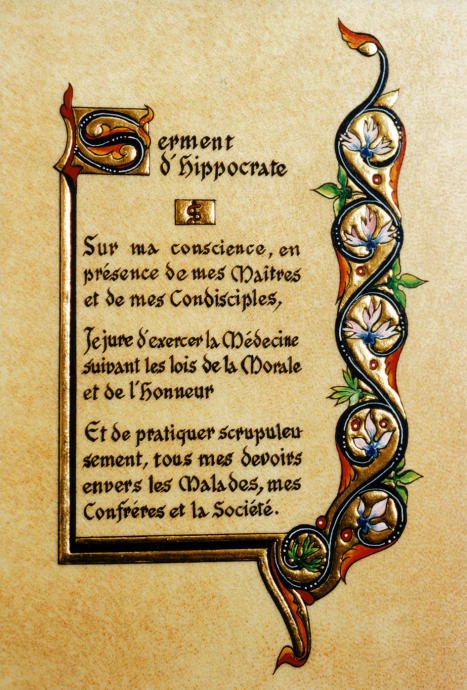 Serment
d'Hippocrate
Sur ma conscience, en
présence de mes Maîtres
et de mes Condisciples,
Je jure d'exercer la Médecine
suivant les lois de la Morale
et de l'Honneur
Et de pratiquer scrupuleu
sement, tous mes devoirs
envers les Malades, mes
Confréres et la Société.